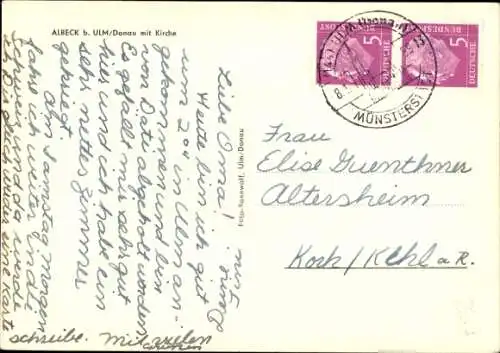 ALBECK b. ULM/Donau mit Kirche
Liebe Oma!
Heute bin ich gut
um 2°° in Ulm an-
gekommen und bin
von Dati abgeholt worden
Es gefällt mir sehr gut
hier und ich habe ein
sehr nettes Zimmer
gekriegt.
Am Samstag morgen
fahre ich weiter in d.
Schweiz und da werde
ich Dir gleich wieder eine Karte
schreibe. Mit vielen
Grüssen
Foto-Rennwolf, Ulm-Donau
5
DEUTSCHE
BUNDESPOST
5
DEUTSCHE
BUNDESPOST
MÜNSTERSTADT
Frau
Elise Guenthner
Altersheim
Kork/Kehl a R.